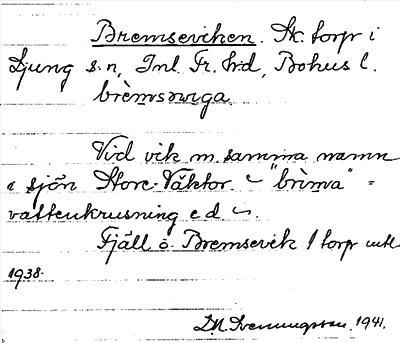 Bremseviken. Sk. torp i
Ljung sn, Inl. Fr. hd, Bohus l.
brèmswiga
Vid vik m. samma namn
i sjön Store-Väktor. ~ "brima" =
vattenkrusning e d ~.
Fjäll o. Bremsevik 1 torp utl
1938.
1941.